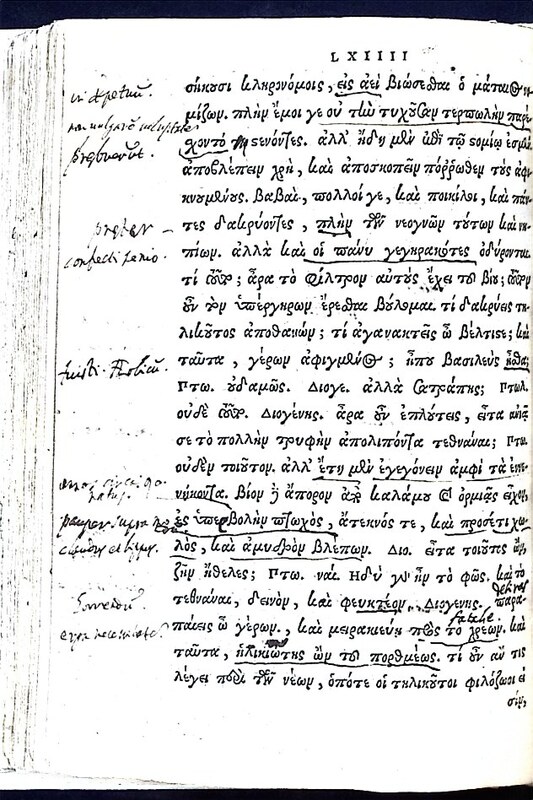 LXIIII
in perpetuū.
præbuerūt.
præter
confecti senio.
fuisti.
σήκυσι κληρονόμοις, εἰς ἀεὶ βιώσεσθαι ὁ μάταιος νο
μίζων. πλὴν ἔμοι γε οὐ τὴν τυχοῦσαν τερπωλὴν παρέ
χοντο στένοντες. ἀλλ' ἤδη μὲν ἐπὶ τῷ στομίῳ ἐσμὲν
ἀποβλέπειν χρὴ, καὶ ἀποσκοπεῖν πόρρωθεν τοὺς ἀφι
κνουμένους. βαβαὶ, πολλοί γε, καὶ ποικίλοι, καὶ πάν
τες δακρύοντες, πλὴν τῶν νεογνῶν τούτων καὶ νη
πίων. ἀλλὰ καὶ οἱ πάνυ γεγηρακότες ὀδύρονται.
τί οὖν; ἆρα τὸ φίλτρον αὐτοὺς ἔχει τοῦ βίου; τοῦτον
οὖν τὸν ὑπέργηρων ἐρέσθαι βούλομαι. τί δακρύεις τη
λικοῦτος ἀποθανών; τί ἀγανακτεῖς ὦ βέλτιστε; καὶ
ταῦτα, γέρων ἀφιγμένος; ἦπου βασιλεὺς ἦσθα;
Πτω. οὐδαμῶς. Διογε. ἀλλὰ σατράπης; Πτωχ.
οὐδὲ τοῦτο. Διογένης. ἆρα οὖν ἐπλούτεις, εἶτα ἀνιᾷ
σε τὸ πολλὴν τρυφὴν ἀπολιπόντα τεθνάναι; Πτω.
οὐδὲν τοιοῦτον. ἀλλ' ἔτη μὲν ἐγεγόνειν ἀμφὶ τὰ ἐνε
νήκοντα. βίον δὲ ἄπορον ἀπὸ καλάμου καὶ ὁρμιᾶς εἶχον,
ἐς ὑπερβολὴν πτωχὸς, ἄτεκνός τε, καὶ προσέτι χω
λὸς, καὶ ἀμυδρὸν βλέπων. Διο. εἶτα τοιοῦτος ὢν
ζῆν ἤθελες; Πτω. ναί. ἡδὺ γὰρ ἦν τὸ φῶς. καὶ τὸ
τεθνάναι, δεινὸν, καὶ φευκτέον. Διογένης. παρα
παίεις ὦ γέρων, καὶ μειρακιεύῃ πρὸς τὸ χρεών. καὶ
ταῦτα, ἡλικιώτης ὢν τοῦ πορθμέως. τί οὖν ἄν τις
λέγει περὶ τῶν νέων, ὁπότε οἱ τηλικοῦτοι φιλόζωοί εἰ
σιν,